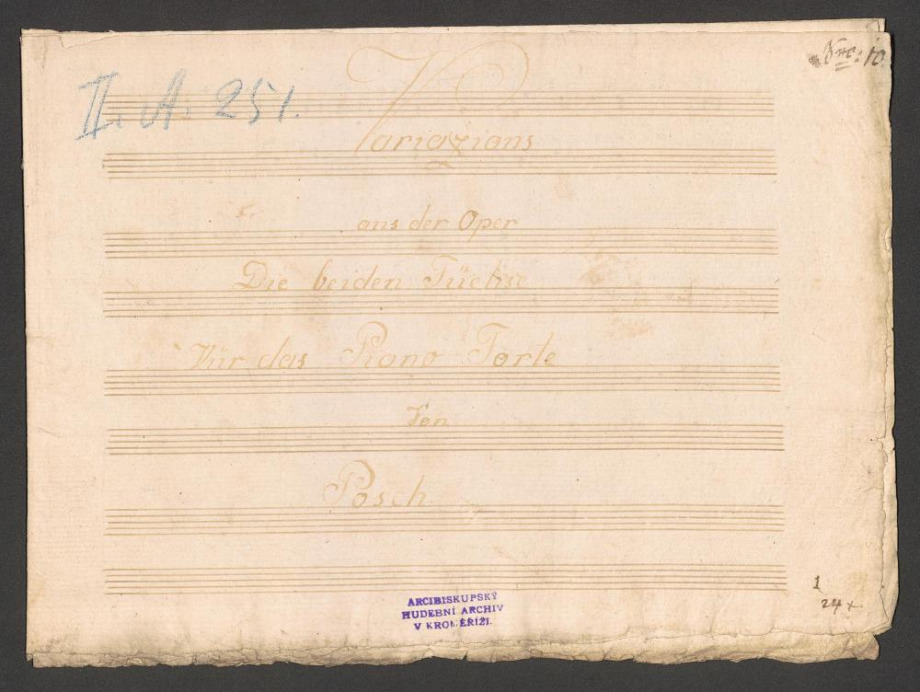 Nro: 10
II. A. 251.
Variazions
aus der Oper
Die beiden Füchse
Für das Piano Forte
Von
Posch
ARCIBISKUPSKÝ
HUDEBNÍ ARCHIV
V KROMĚŘÍŽI.
1
24 x